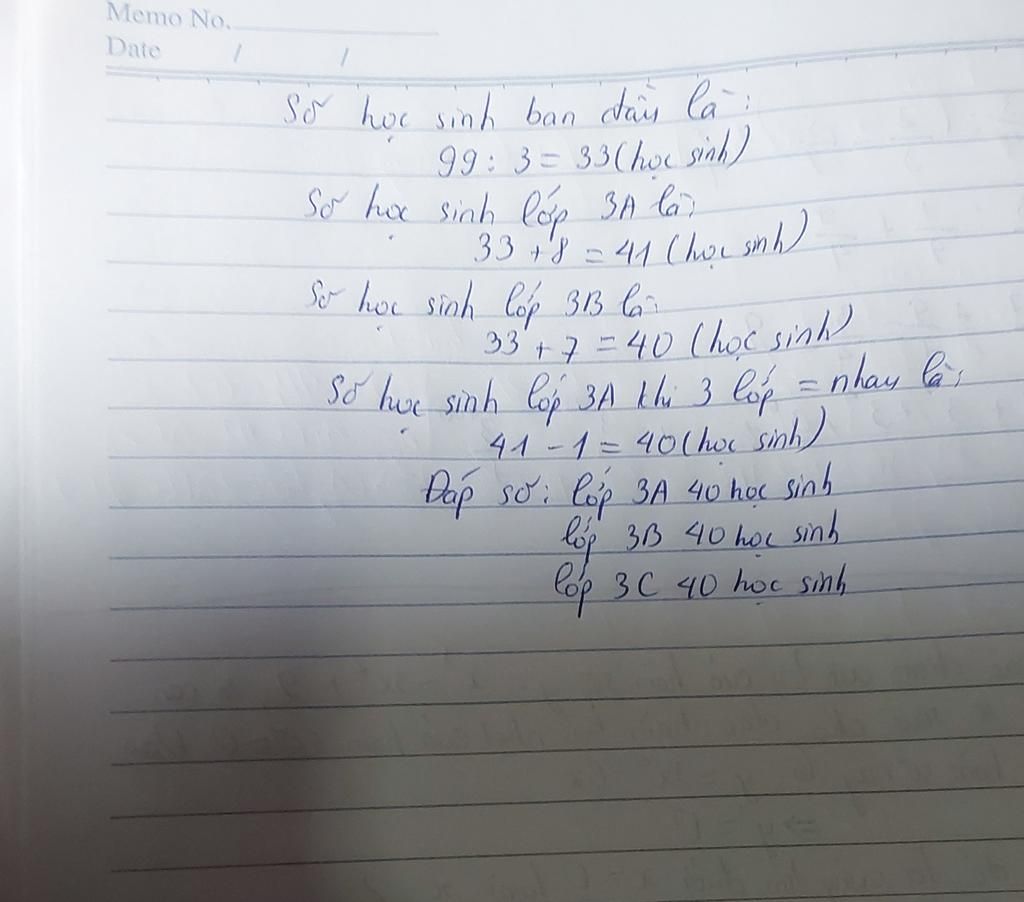 Memo No.
Date / /
Số học sinh ban đầu là:
99 : 3 = 33 (học sinh)
Số học sinh lớp 3A là:
33 + 8 = 41 (học sinh)
Số học sinh lớp 3B là:
33 + 7 = 40 (học sinh)
Số học sinh lớp 3A khi 3 lớp = nhau là:
41 - 1 = 40 (học sinh)
Đáp số: lớp 3A 40 học sinh
lớp 3B 40 học sinh
lớp 3C 40 học sinh